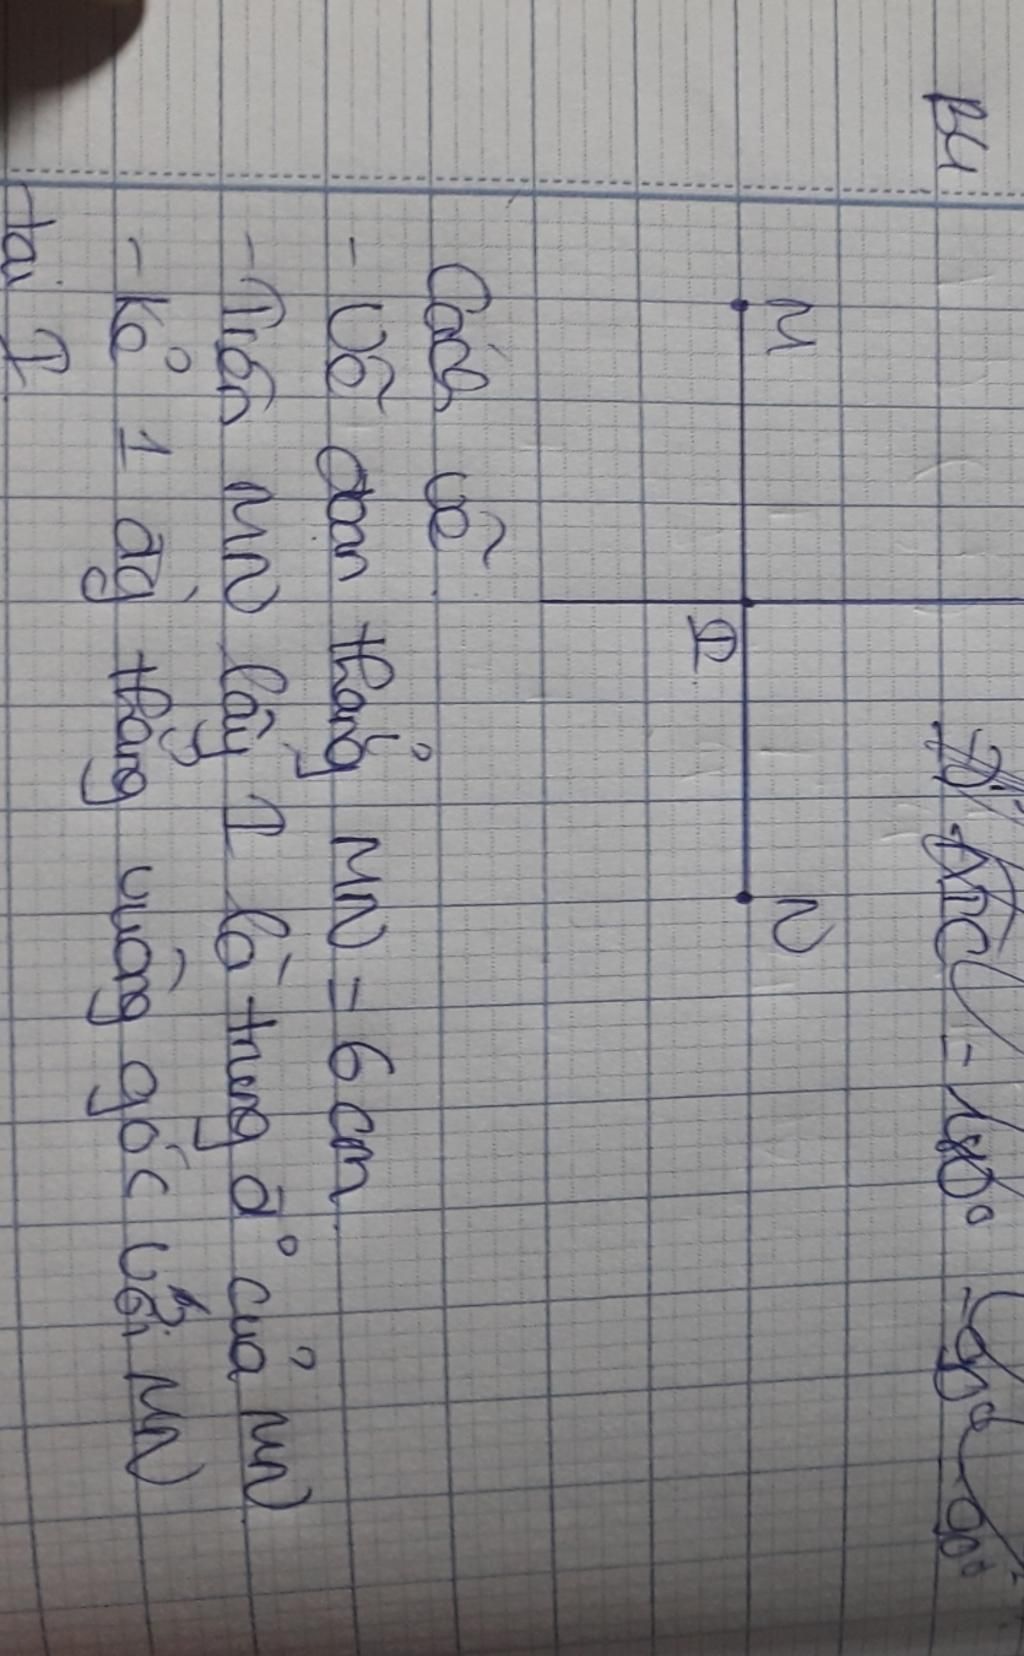 B4
M
N
I
Cách vẽ
- Vẽ đoạn thẳng MN = 6 cm
- Trên MN lấy I là trung đ° của MN
- Kẻ 1 đg̀ thẳng vuông góc với MN
tại I